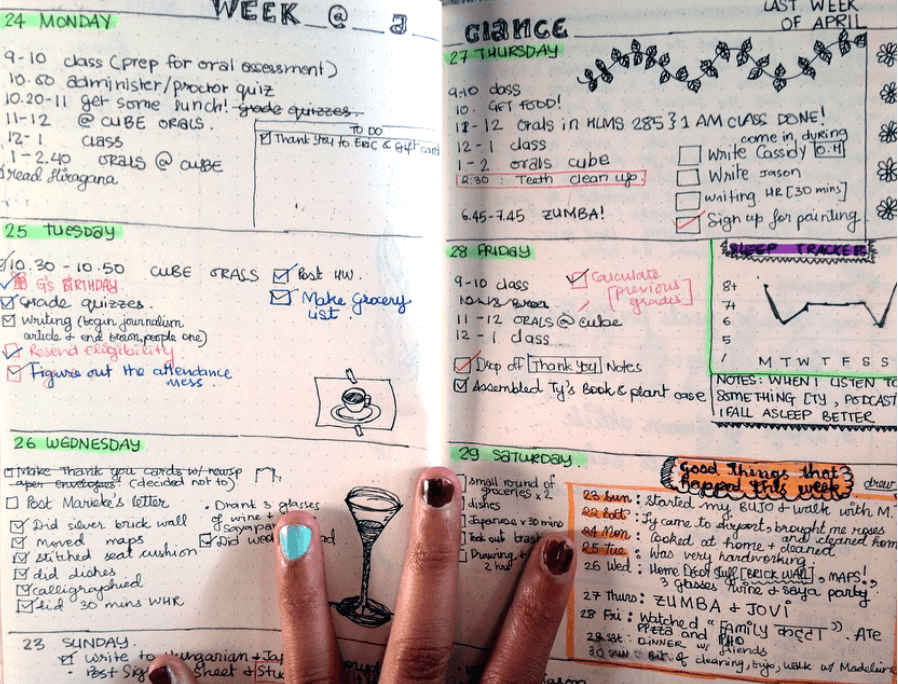 WEEK @ a
GLANCE
LAST WEEK
OF APRIL
24 MONDAY
9-10 class (prep for oral assessment)
10.50 administer/proctor quiz
10.20-11 get some lunch! grade quizzes.
11-12 @ CUBE ORALS.
12-1 class
1-2.40 ORALS @ CUBE
read Hiragana
TO DO
Thank you to Eric & Gift card
25 TUESDAY
10.30-10.50 CUBE ORALS
G's BIRTHDAY
Grade quizzes
Writing (begin journalism
article & end brown people one)
Resend eligibility
Figure out the attendance
mess.
Post HW.
Make Grocery
list.
26 WEDNESDAY
Make Thank you cards w/ newsp
aper envelopes (decided not to)
Post Marieke's letter
Did silver brick wall
Moved maps
stitched seat cushion
did dishes
calligraphied
did 30 mins WHR
Drank 3 glasses
of wine
Did
23 SUNDAY
write to Hungarian &
27 THURSDAY
9.10 class
10. GET FOOD!
11-12 orals in HLMS 285 } 1 AM CLASS DONE!
12-1 class
1-2 orals cube
2:30: Teeth clean up
6.45-7.45 ZUMBA!
come in, dyring
Write Cassidy O.H
Write Jason
writing HR [30 mins]
Sign up for painting
28 FRIDAY
9-10 class
11-12 ORALS @ cube
12-1 class
Calculate
[previous
grades]
Drop off Thank You Notes
Assembled Ty's Book & plant case
SLEEP TRACKER
8+
7+
6
5
M T W T F S S
NOTES: WHEN I LISTEN TO
SOMETHING [TY, PODCAST
I FALL ASLEEP BETTER
29 SATURDAY
small round of
groceries x 2
dishes
Japanese x 30 mins
Took out trash
2 hr
Good things that
happed this week
draw
23 Sun: Started my BUJO & walk with M.
22 Sat: Ty came to airport, brought me roses
and cleaned home
24 Mon: Cooked at home & cleaned
25 Tue: Was very hardworking
26 Wed: Home Décor Stuff [BRICK WALL], MAPS!,
3 glasses of wine & saya party
27 Thurs: ZUMBA & JOVI
28 Fri: Watched "Family कट्टा". Ate
Pizza and PHO
29 Sat: DINNER w/ friends
30 Sun: Bit of cleaning, bujo, walk w/ Madeline